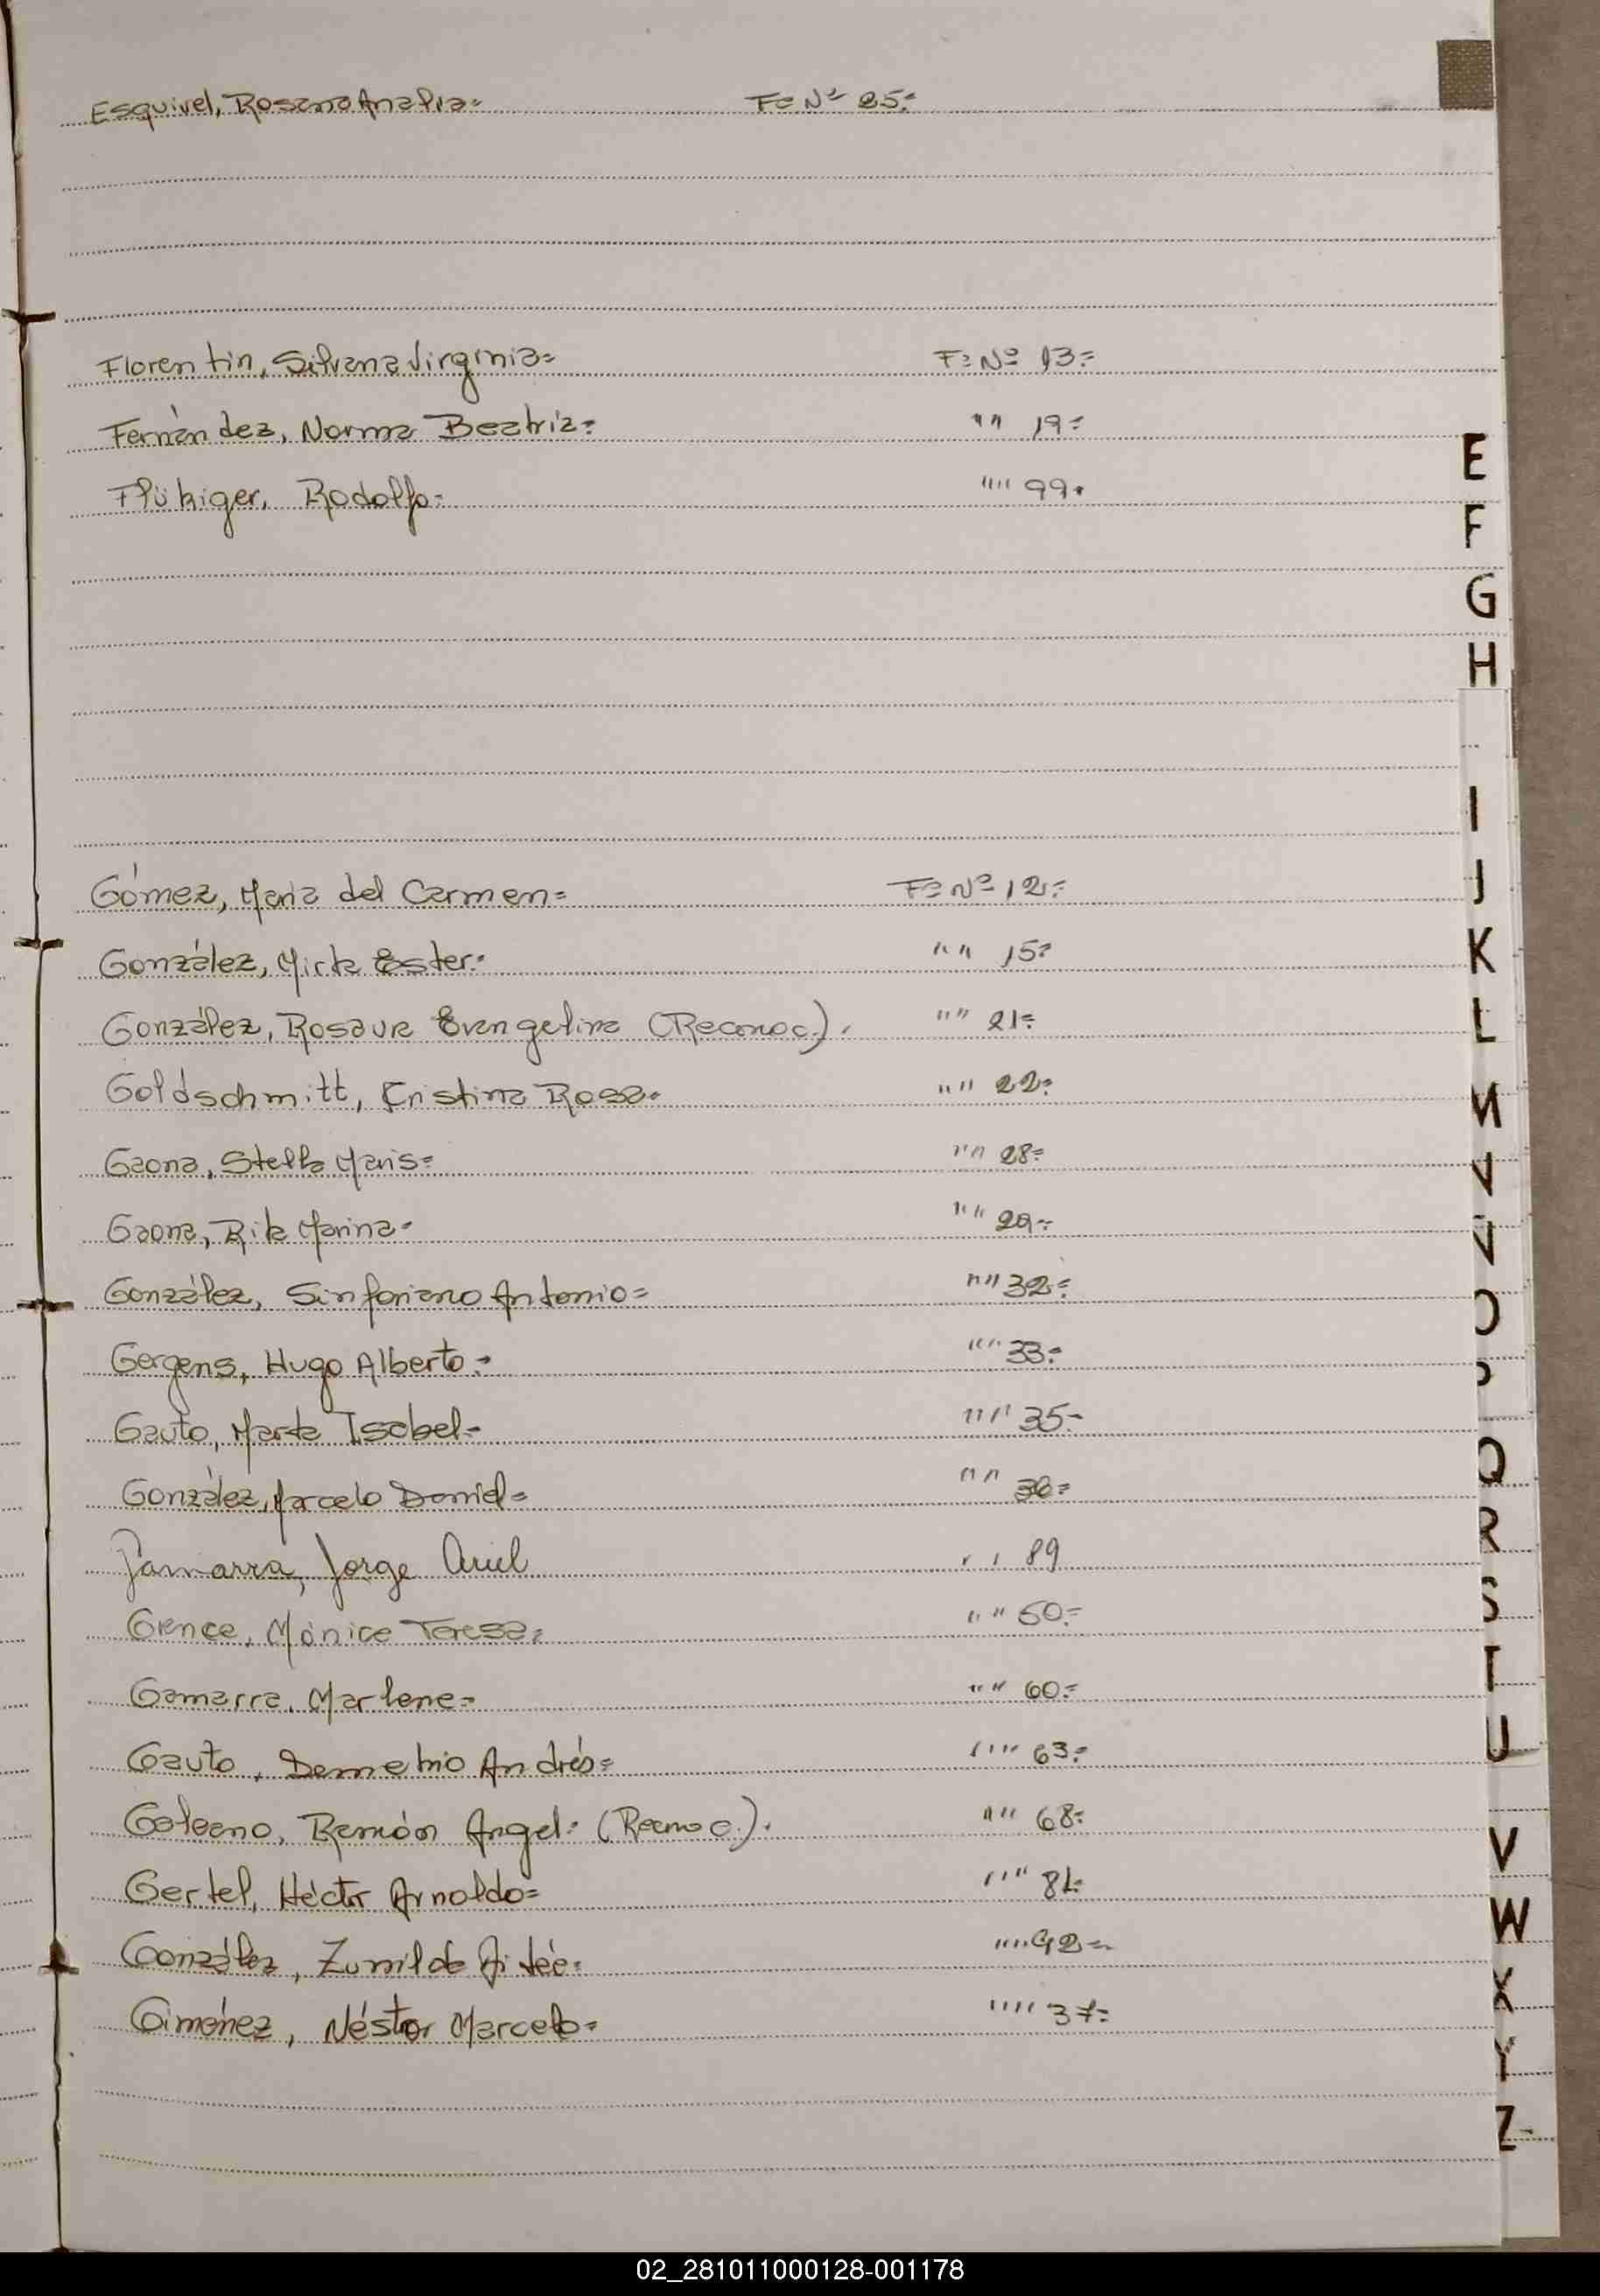 Esquivel, Rosana Analia= Fº Nº 25=
Florentin, Silvana Virginia= Fº Nº 13=
Fernández, Norma Beatriz= " " 19=
Flükiger, Rodolfo= " " 99.
E
F
G
H
I
Gómez, Maria del Carmen= Fº Nº 12=
J
González, Mirta Ester= " " 15=
K
González, Rosaura Evangelina (Reconoc.). " " 21=
L
Goldschmitt, Cristina Rosa= " " 22=
M
Gaona, Stella Maris= " " 28=
N
Gaona, Rita Marina= " " 29=
Ñ
González, Sinforiano Antonio= " " 32=
O
Gergens, Hugo Alberto= " " 33=
P
Gauto, Marta Isabel= " " 35=
Q
González, Marcelo Daniel= " "
R
Gamarra, Jorge Ariel " " 89
S
Mónica Teresa= " " 50=
T
Gamarra, Marlene= " " 60=
U
Gauto, Demetrio Andrés= " " 63=
Galeano, Ramón Angel= (Reconoc.). " " 68=
V
Gertel, Héctor Arnoldo= " "
W
González, Zunilda Aideé= " " 92=
X
Giménez, Néstor Marcelo= " " 37=
Y
Z
02_281011000128-001178